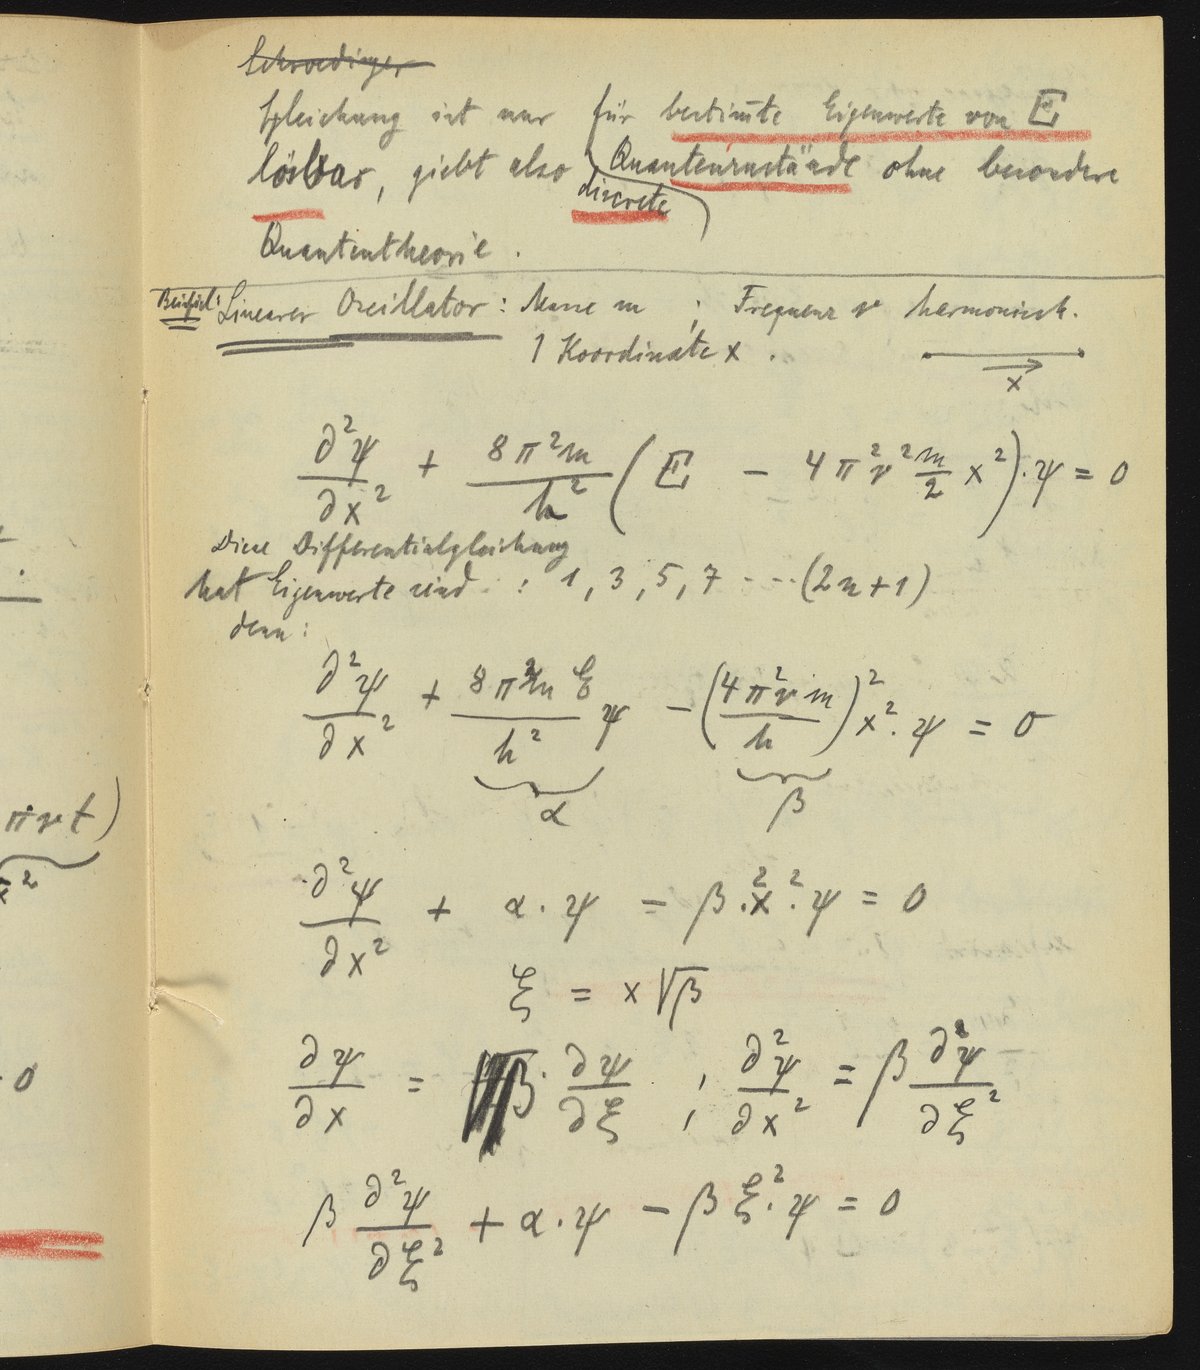 Schroedinger
Gleichung ist nur für bestimmte Eigenwerte von E
lösbar, giebt also discrete Quantenzustände ohne besondere
Quantentheorie.
Beispiel: Linearer Oscillator: Masse m ; Frequenz ν harmonisch.
1 Koordinate x .
x
∂²ψ/∂x² + 8π²m/h² (E − 4π²ν² m/2 x²)·ψ = 0
Diese Differentialgleichung
hat Eigenwerte sind : 1, 3, 5, 7 - - - (2n+1)
denn:
∂²ψ/∂x² + 8π²m E/h² ψ − (4π²ν m/h)² x²·ψ = 0
α β
∂²ψ/∂x² + α·ψ − β²·x²·ψ = 0
ξ = x √β
∂ψ/∂x = √β · ∂ψ/∂ξ ; ∂²ψ/∂x² = β ∂²ψ/∂ξ²
β ∂²ψ/∂ξ² + α·ψ − β ξ²·ψ = 0
πνt)
x²
0